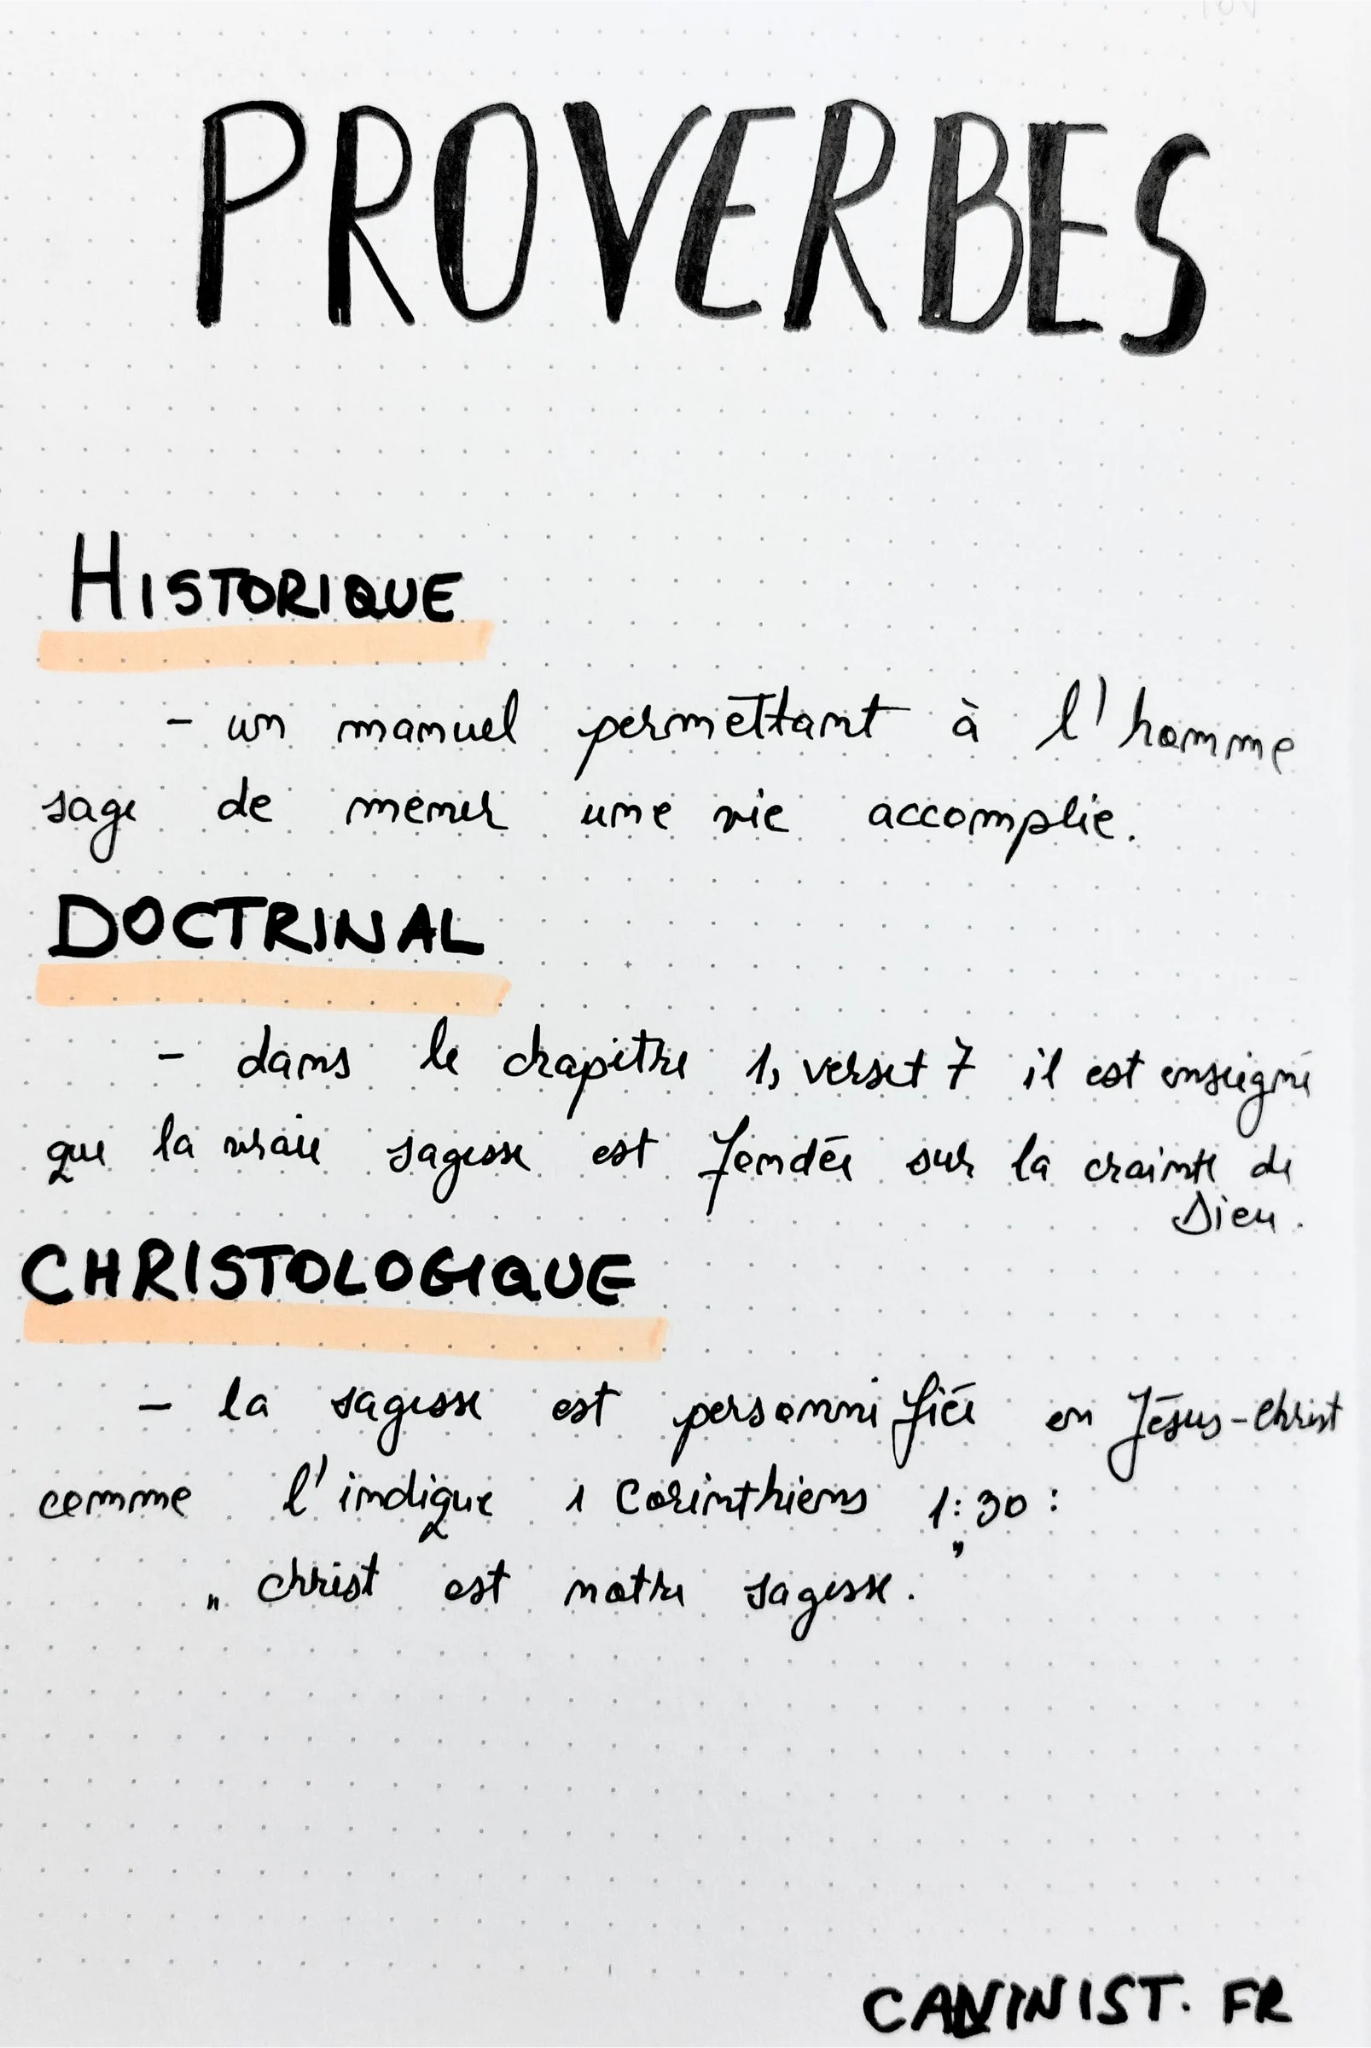 PROVERBES
HISTORIQUE
- un manuel permettant à l'homme
sage de mener une vie accomplie.
DOCTRINAL
- dans le chapitre 1, verset 7 il est enseigné
que la vraie sagesse est fondée sur la crainte de
Dieu.
CHRISTOLOGIQUE
- la sagesse est personnifiée en Jésus-Christ
comme l'indique 1 Corinthiens 1:30 :
„ Christ est notre sagesse. ”